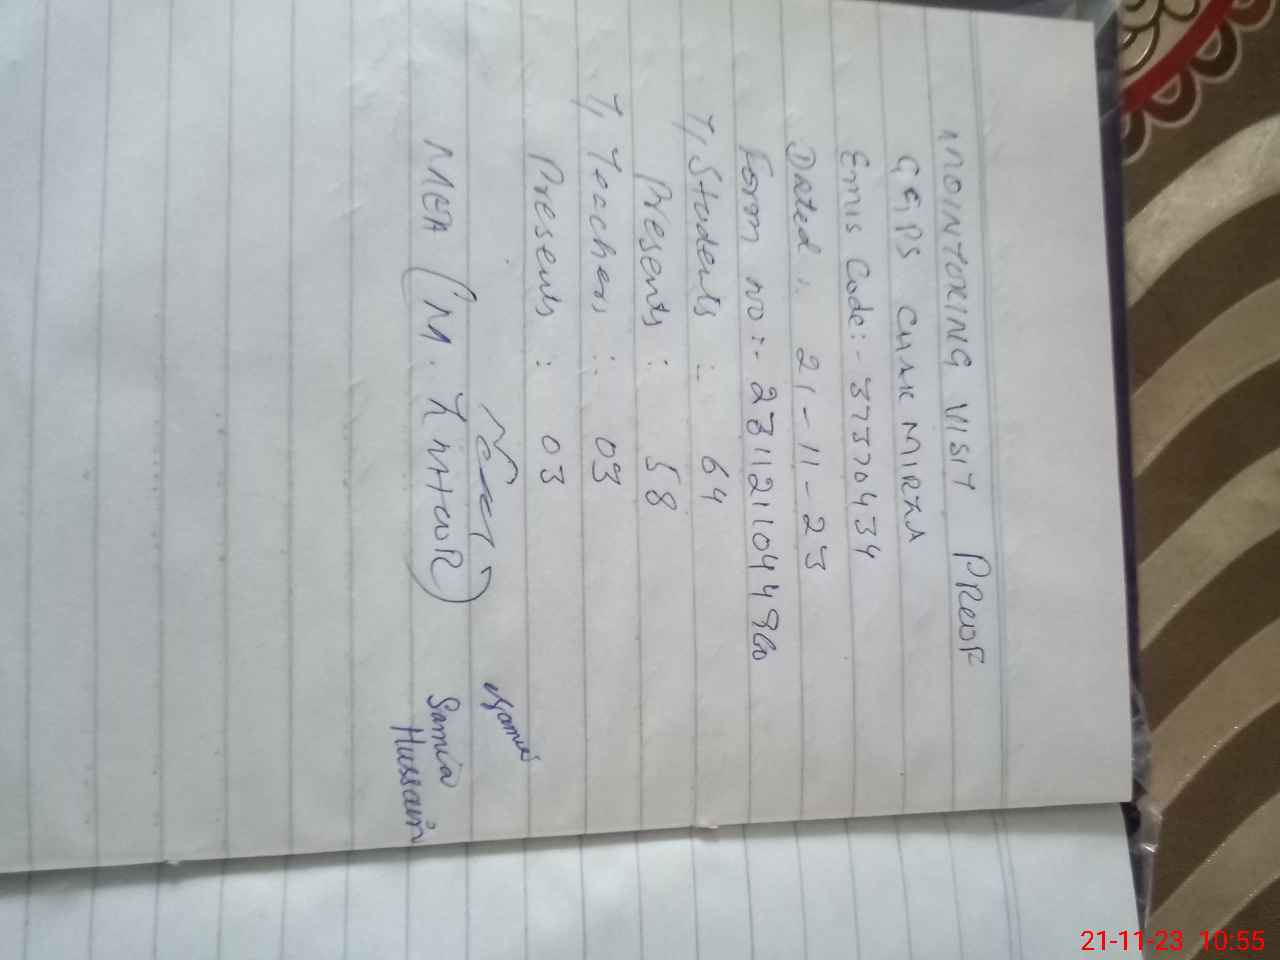 MOINTORING VISIT PROOF
GGPS CHAK MIRZA
Emis Code:- 37370434
Dated: 21-11-23
Form no:- 231121104496
T/Students : 64
Presents : 58
T/Teachers : 03
Presents : 03
MEA (M. ZAHOOR)
Samia
Hussain
21-11-23 10:55